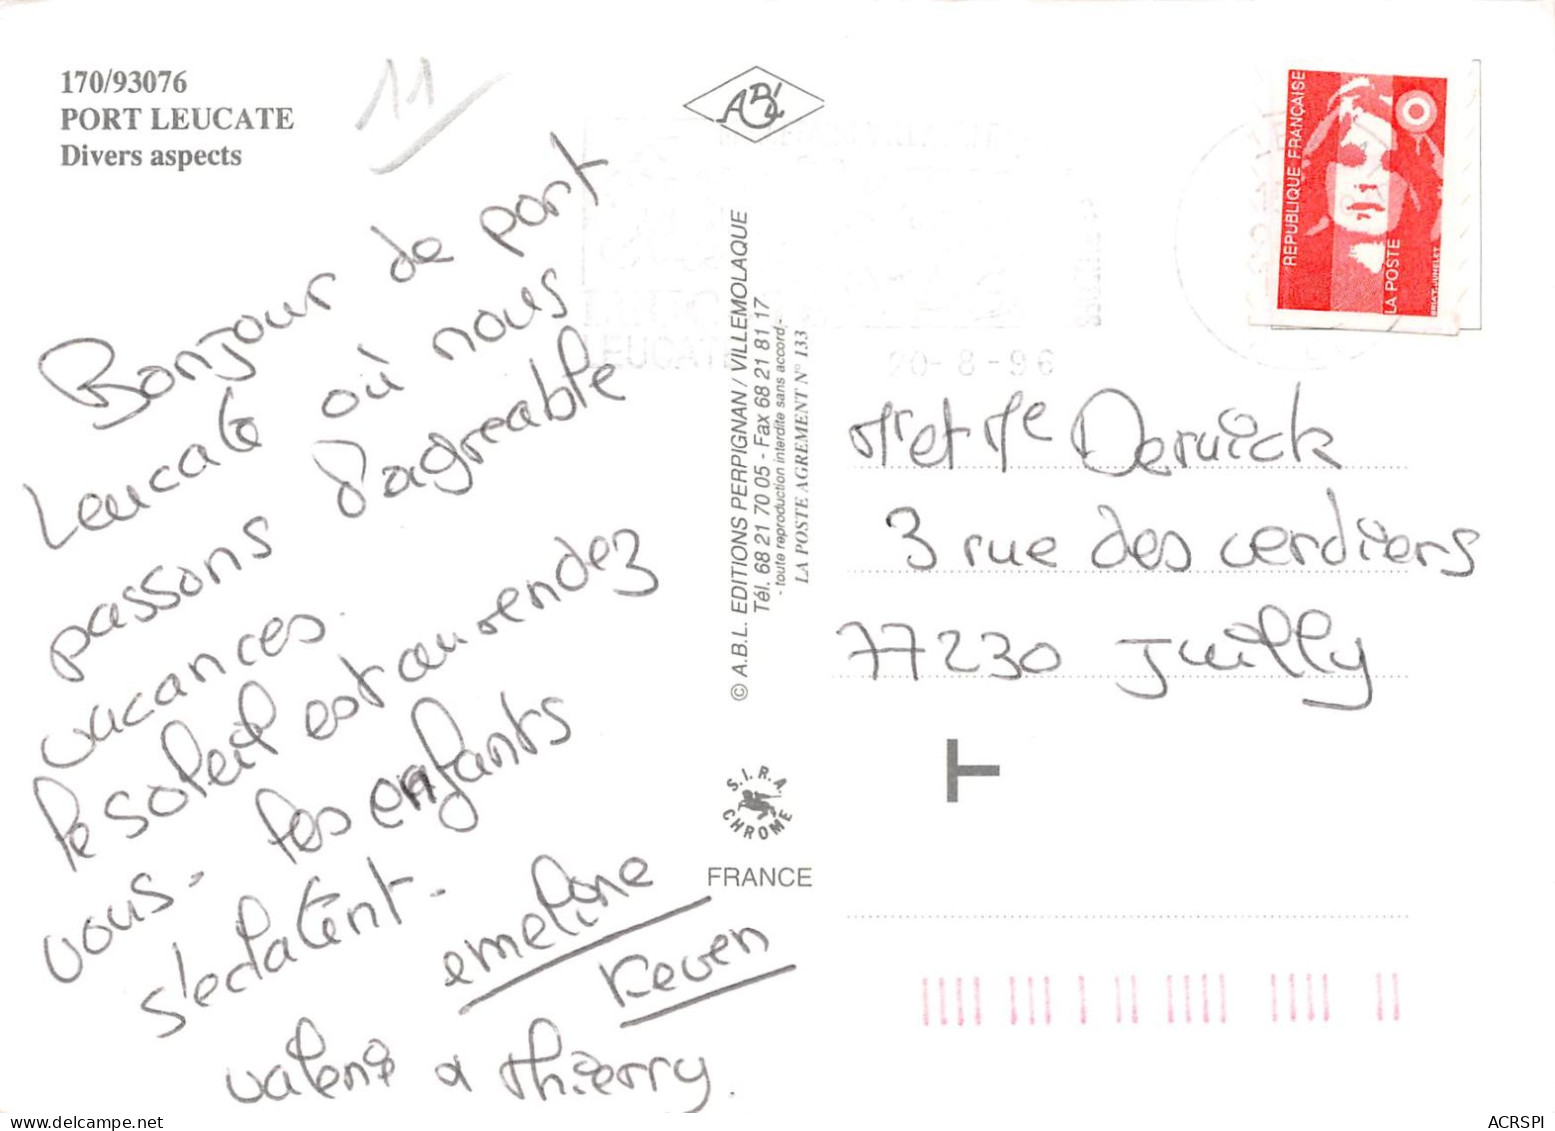 170/93076
PORT LEUCATE
Divers aspects
11
Bonjour de port
Leucate où nous
passons d'agréable
vacances.
le soleil est au rendez
vous. les enfants
s'eclatent.
emeline
Keven
valérie & thierry.
ABL
© A.B.L. EDITIONS PERPIGNAN / VILLEMOLAQUE
Tél. 68 21 70 05 - Fax 68 21 81 17
- toute reproduction interdite sans accord -
LA POSTE AGREMENT N° 133
S.I.R.A.
CHROME
FRANCE
RÉPUBLIQUE FRANÇAISE
LA POSTE
BRIAT-JUMELET
LEUCATE
20-8-96
Mr et Me Deruick
3 rue des cerdiers
77230 Juilly
T
ACRSPI